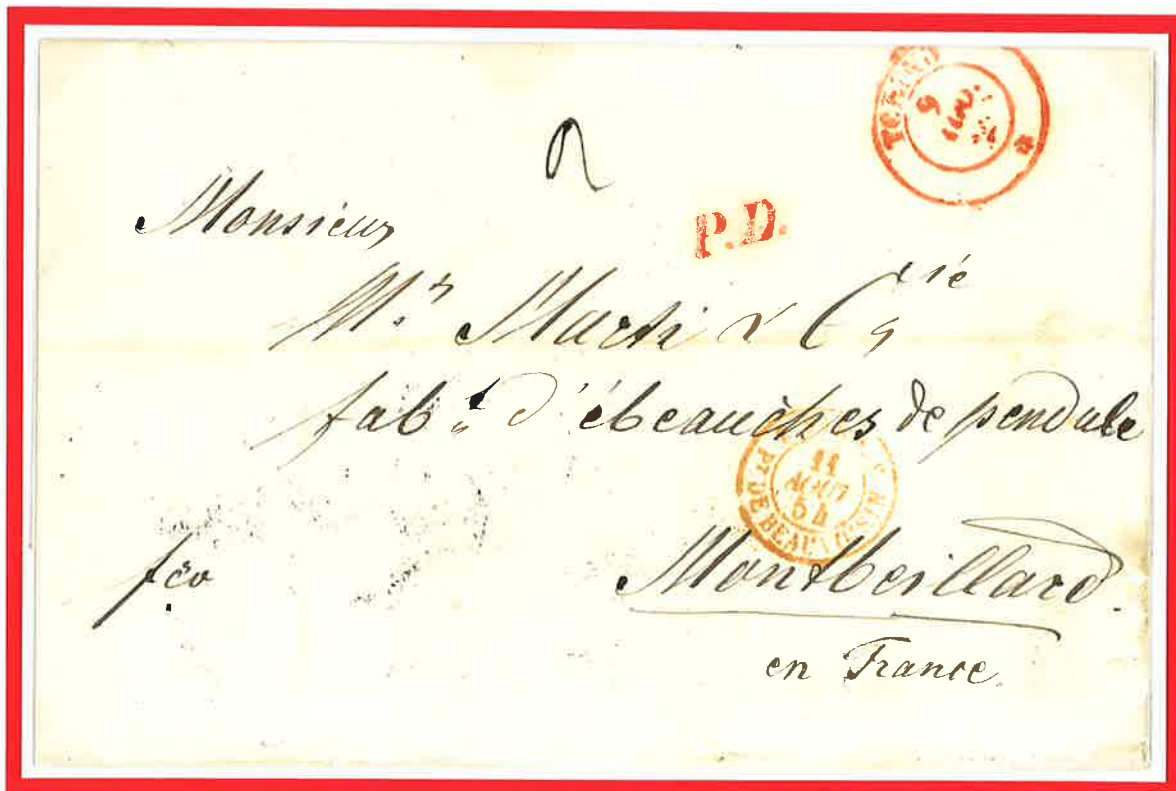 TORINO
9
54
2
P.D.
Monsieur
Mr. Marti & Cie
fabt. d'ébeauches de pendule
11
AOUT
54
PT DE BEAUVOISIN
fco
Montbeillard.
en France.